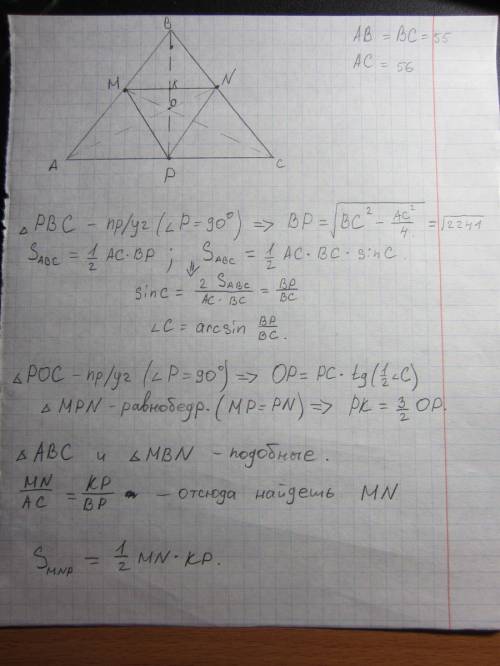 B
AB = BC = 55
AC = 56
M K N
O
A P C
△ PBC - пр/уг (∠P = 90°) => BP = √(BC² - AC²/4) = √2241
S_ABC = 1/2 AC · BP ; S_ABC = 1/2 AC · BC · sin C.
⇓
sin C = 2 S_ABC / AC · BC = BP / BC
∠C = arcsin BP / BC.
△ POC - пр/уг (∠P = 90°) => OP = PC · tg (1/2 ∠C)
△ MPN - равнобедр. (MP = PN) => PK = 3/2 OP.
△ ABC и △ MBN - подобные.
MN / AC = KP / BP - отсюда найдешь MN
S_MNP = 1/2 MN · KP.